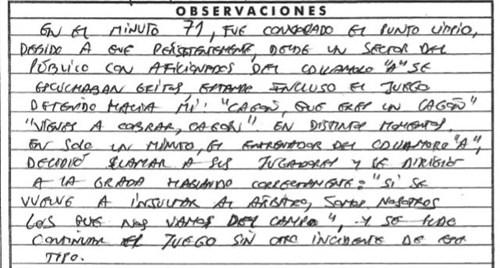 OBSERVACIONES
EN EL MINUTO 71, FUE CONGELADO EL PUNTO LIMPIO,
DEBIDO A QUE PERSISTENTEMENTE, DESDE UN SECTOR DEL
PÚBLICO CON AFICIONADOS DEL COLLADO "A" SE
ESCUCHABAN GRITOS, ESTANDO INCLUSO EL JUEGO
DETENIDO HACIA MÍ: "CAGÓN, QUE ERES UN CAGÓN"
"VIENES A COBRAR, CAGÓN". EN DISTINTOS MOMENTOS.
EN SOLO UN MINUTO, EL ENTRENADOR DEL "A",
DECIDIÓ LLAMAR A SUS JUGADORES Y SE DIRIGIÓ
A LA GRADA HABLANDO CORRECTAMENTE: "SI SE
VUELVE A INSULTAR AL ÁRBITRO, SOMOS NOSOTROS
LOS QUE NOS VAMOS DEL CAMPO", Y SE PUDO
CONTINUAR EL JUEGO SIN OTRO INCIDENTE DE ESTE
TIPO.